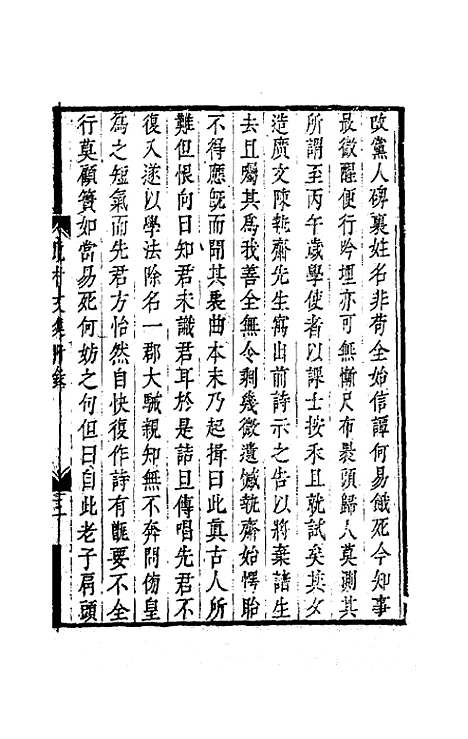 改黨人碑裏姓名非苟全始信譚何易餓死今知事
最微醒便行吟埋亦可無慚尺布裹頭歸人莫測其
所謂至丙午歲學使者以課士按禾且就試矣其夕
造廣文陳執齋先生寓出前詩示之告以將棄諸生
去且屬其爲我善全無令剩幾微遺憾執齋始愕眙
不得應旣而聞其衷曲本末乃起揖曰此眞古人所
難但恨向日知君未識君耳於是詰旦傳唱先君不
復入遂以學法除名一郡大駭親知無不奔問徬皇
爲之短氣而先君方怡然自快復作詩有甑要不全
行莫顧簀如當易死何妨之句但曰自此老子肩頭
晚村文集附錄
三